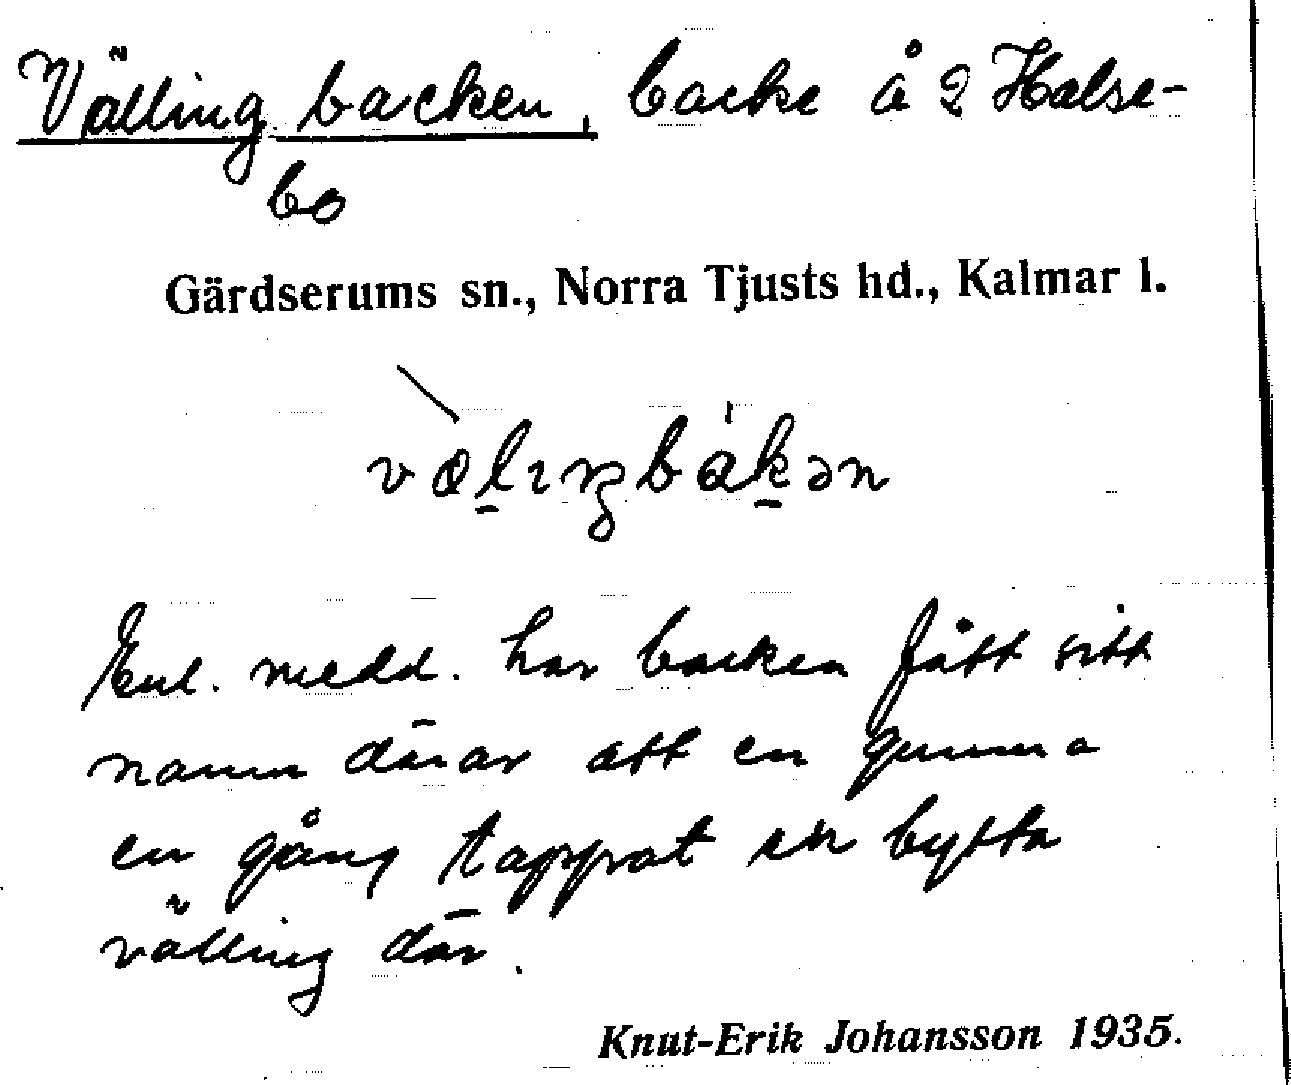 Vällingbacken, backe å 2 Halse-
bo
Gärdserums sn., Norra Tjusts hd., Kalmar l.
vælıŋbákən
Enl. medd. har backen fått sitt
namn därav att en gumma
en gång tappat sin bytta
välling där.
Knut-Erik Johansson 1935.